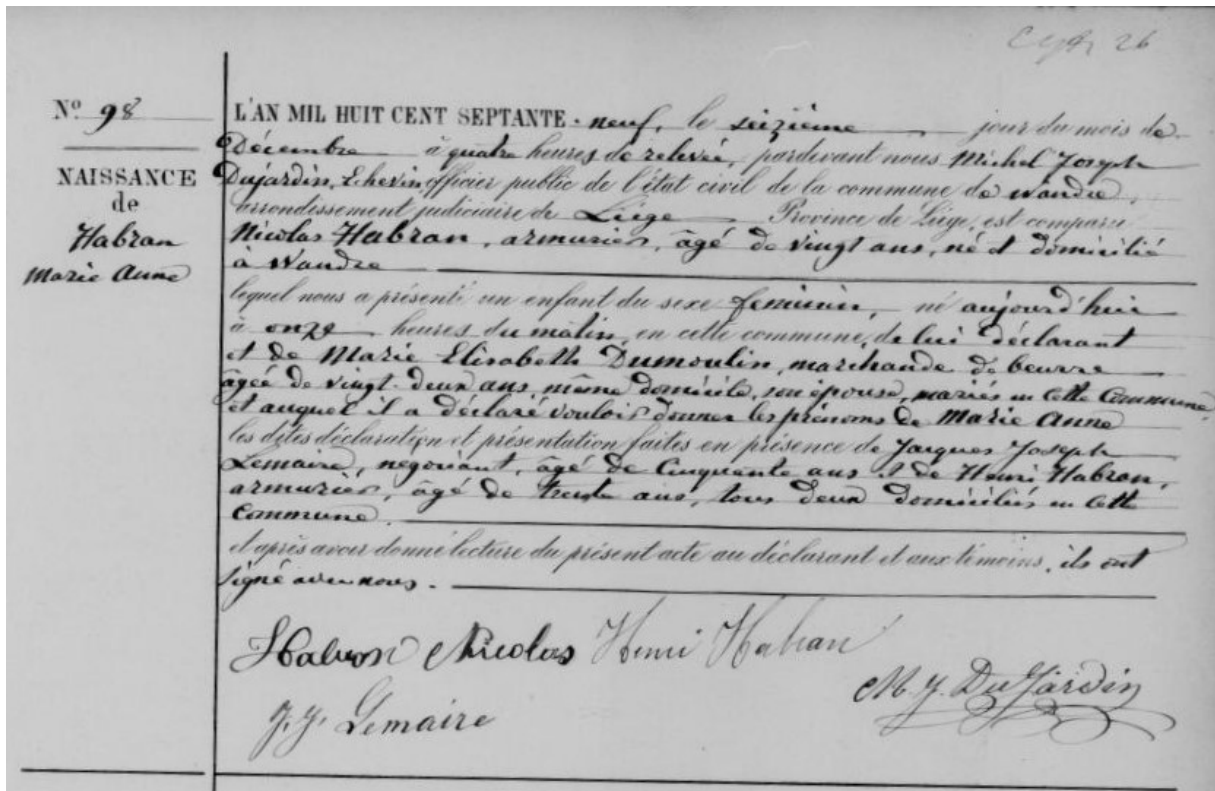 26
Nº 98
NAISSANCE
de
Habran
Marie Anne
L'AN MIL HUIT CENT SEPTANTE-neuf, le seizième jour du mois de
Décembre à quatre heures de relevée, pardevant nous Michel Joseph
Dujardin, Echevin, officier public de l'état civil de la commune de Wandre,
arrondissement judiciaire de Liége Province de Liége, est comparu
Nicolas Habran, armurier, âgé de vingt ans, né et domicilié
à Wandre
lequel nous a présenté un enfant du sexe feminin, né aujourd'hui
à onze heures du matin, en cette commune, de lui déclarant
et de Marie Elisabeth Dumoulin, marchande de beurre
âgée de vingt-deux ans, même domicile, son épouse, mariés en cette Commune,
et auquel il a déclaré vouloir donner les prénoms de Marie Anne
les dites déclaration et présentation faites en présence de Jacques Joseph
Lemaire, negociant, âgé de Cinquante ans et de Henri Habran,
armurier, âgé de trente ans, tous deux domiciliés en cette
Commune.
et après avoir donné lecture du présent acte au déclarant et aux témoins, ils ont
signé avec nous.
Habran Nicolas Henri Habran
M. J. DuJardin
J. J. Lemaire